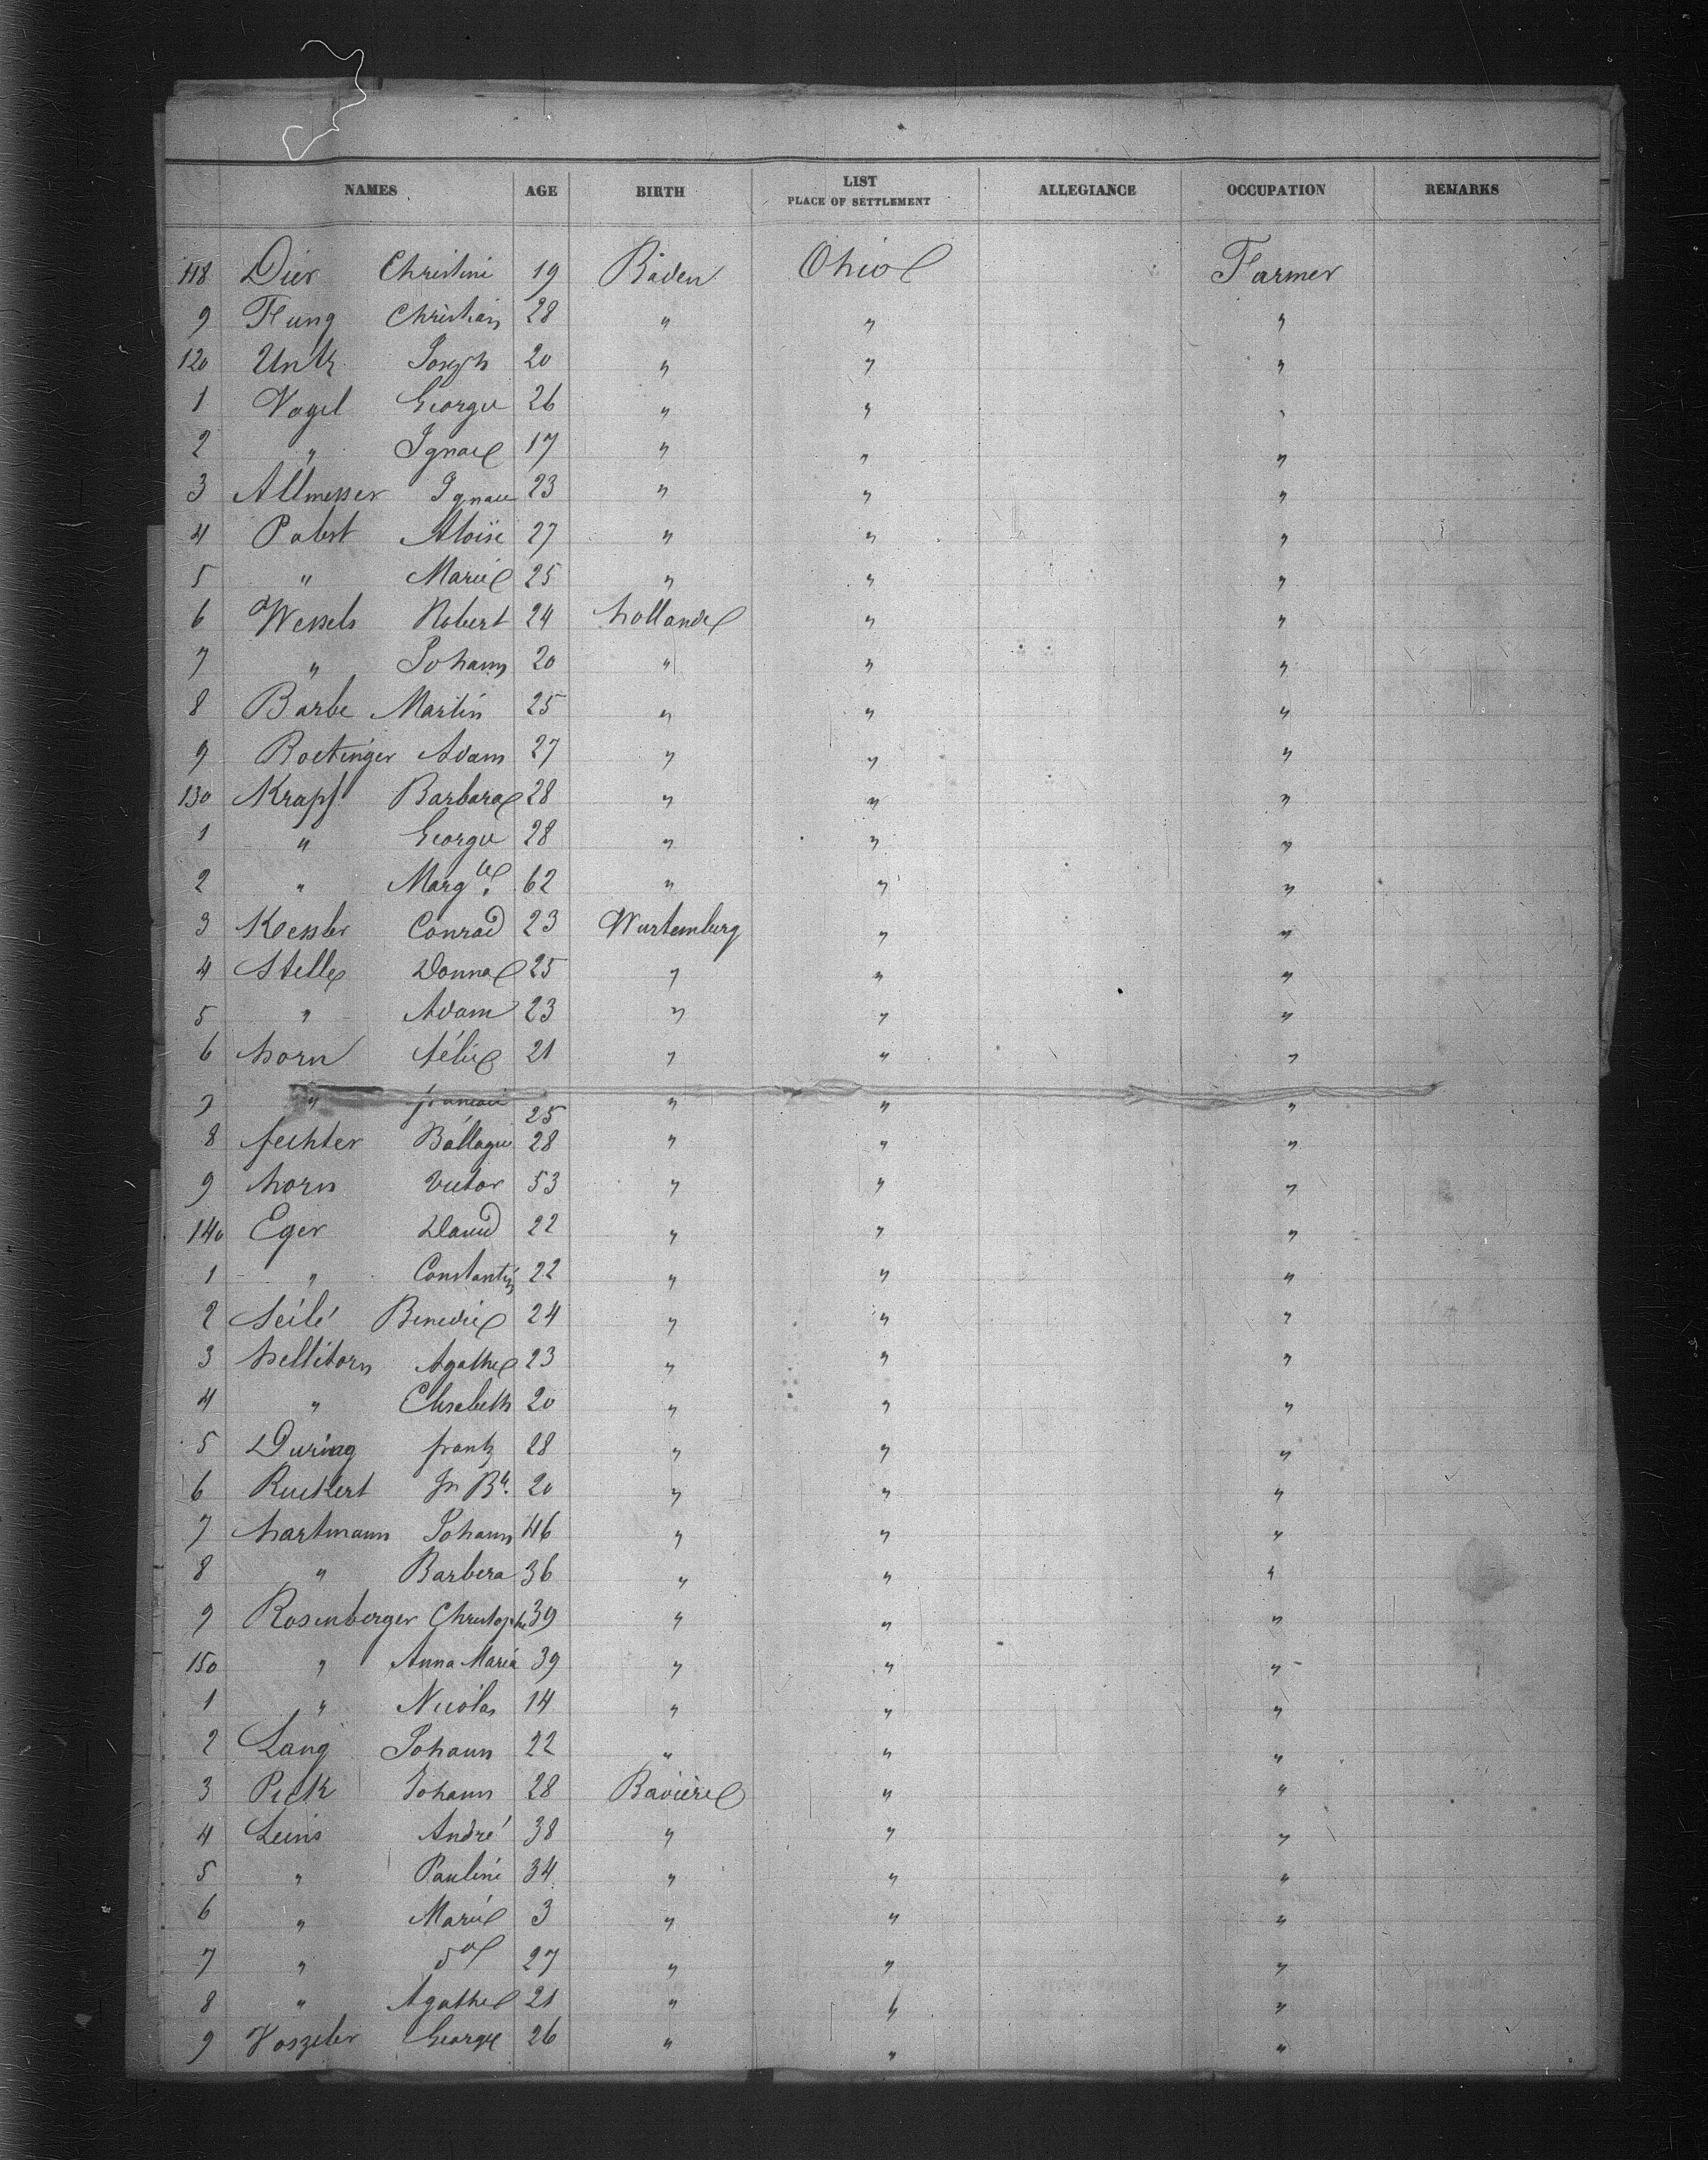 NAMES AGE BIRTH LIST PLACE OF SETTLEMENT ALLEGIANCE OCCUPATION REMARKS
118 Dier Christine 19 Baden Ohio Farmer
9 Flung Christian 28 " " "
120 Untz Joseph 20 " " "
1 Vogel George 26 " " "
2 " Ignace 17 " " "
3 Allmesser Ignace 23 " " "
4 Pabst Aloïse 27 " " "
5 " Marie 25 " " "
6 Wessels Robert 24 hollande " "
7 " Johann 20 " " "
8 Barbe Martin 25 " " "
9 Roetinger Adam 27 " " "
130 Krapf Barbara 28 " " "
1 " George 28 " " "
2 " Margte. 62 " " "
3 Kessler Conrad 23 Wurtemburg " "
4 Stelle Donna 25 " " "
5 " Adam 23 " " "
6 horn félix 21 " " "
7 " 25 " " "
8 fechter 28 " " "
9 horn Victor 53 " " "
140 Eger David 22 " " "
1 " Constantin 22 " " "
2 Seilé Benedic 24 " " "
3 hellitorn Agathe 23 " " "
4 " Elisabeth 20 " " "
5 During frantz 28 " " "
6 Ruckert Jn Bte. 20 " " "
7 hartmann Johann 46 " " "
8 " Barbera 36 " " "
9 Rosenberger Christophe 39 " " "
150 " Anna Maria 39 " " "
1 " Nicolas 14 " " "
2 Lang Johann 22 " " "
3 Pick Johann 28 Bavière " "
4 Leins André 38 " " "
5 " Pauline 34 " " "
6 " Marie 3 " " "
7 " 27 " " "
8 " Agathe 21 " " "
9 Voszeler George 26 " " "